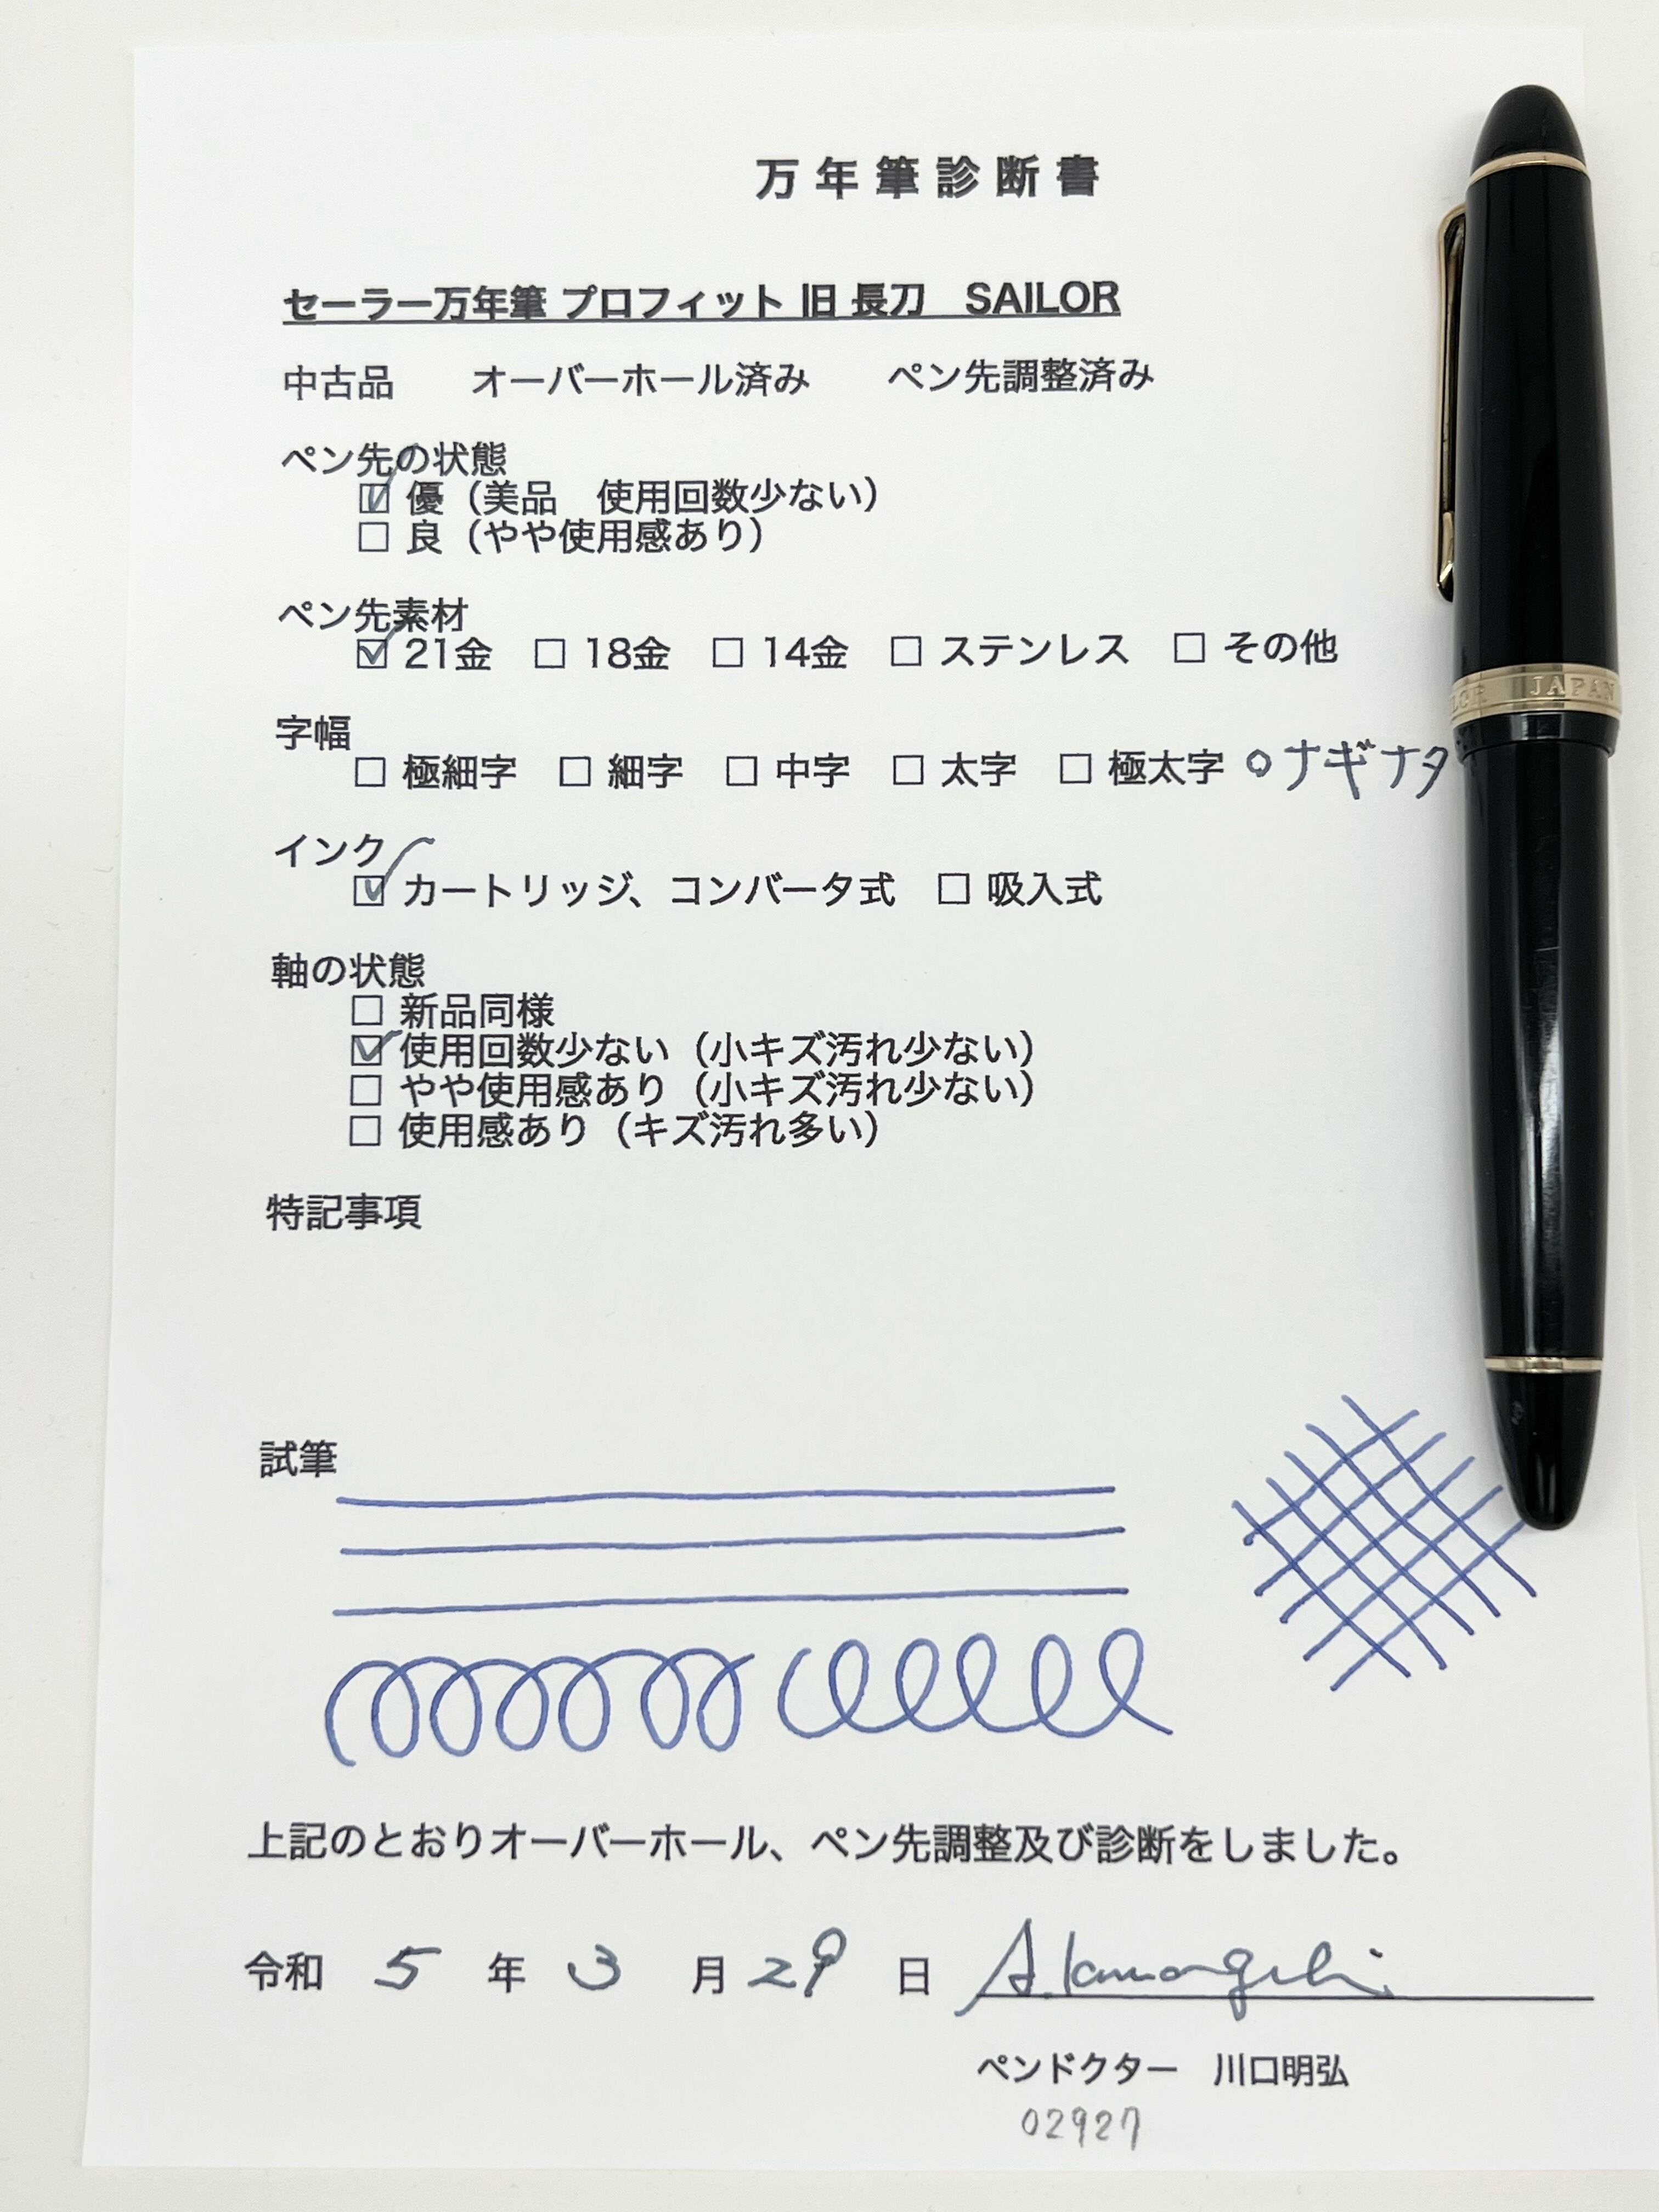 万年筆診断書
セーラー万年筆 プロフィット 旧 長刀　SAILOR
中古品　　オーバーホール済み　　ペン先調整済み
ペン先の状態
☑ 優（美品　使用回数少ない）
☐ 良（やや使用感あり）
ペン先素材
☑ 21金　☐ 18金　☐ 14金　☐ ステンレス　☐ その他
字幅
☐ 極細字　☐ 細字　☐ 中字　☐ 太字　☐ 極太字 ○ナギナタ
インク
☑ カートリッジ、コンバータ式　☐ 吸入式
軸の状態
☐ 新品同様
☑ 使用回数少ない（小キズ汚れ少ない）
☐ やや使用感あり（小キズ汚れ少ない）
☐ 使用感あり（キズ汚れ多い）
特記事項
試筆
上記のとおりオーバーホール、ペン先調整及び診断をしました。
令和 5 年 3 月 29 日 A. Kawaguchi
ペンドクター　川口明弘
02927
JAPAN